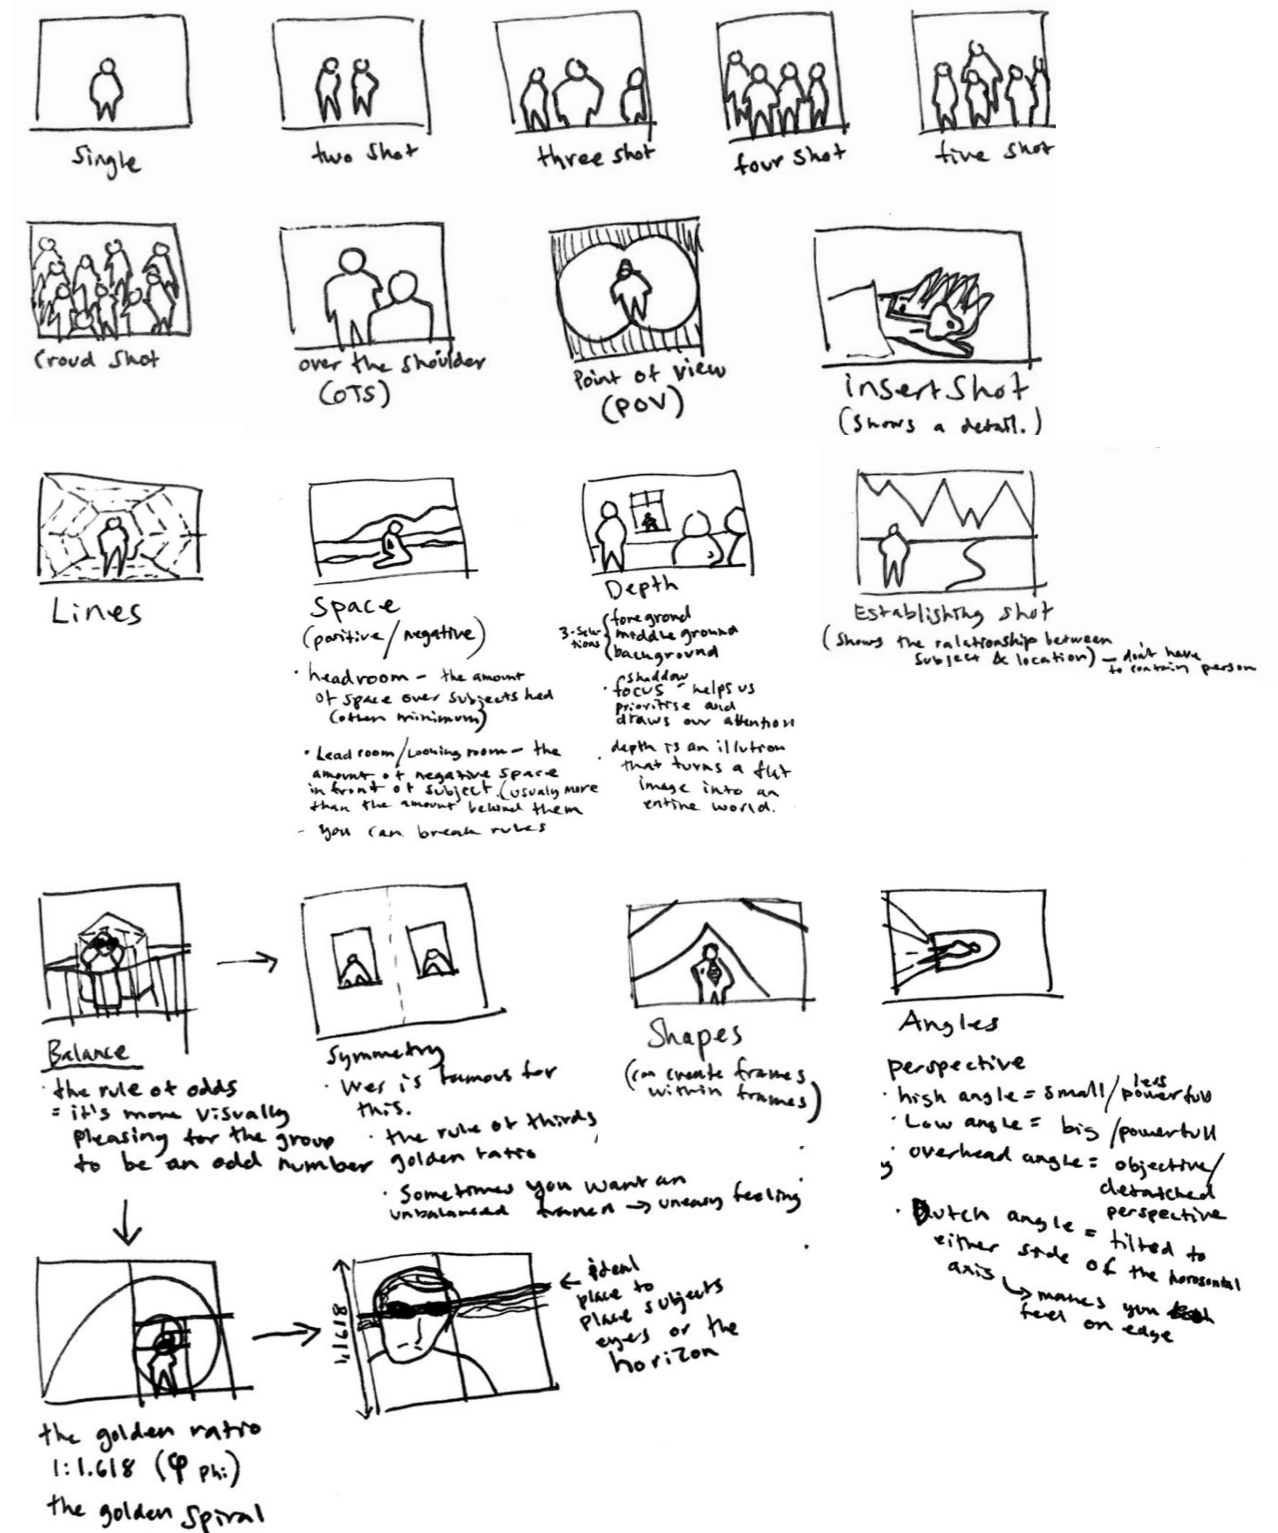 Single
two shot
three shot
four shot
five shot
Croud shot
over the shoulder
(OTS)
Point of view
(POV)
insert shot
(shows a detail.)
Lines
Space
(positive/negative)
· headroom – the amount
of space over subjects hed
(often minimum)
· Lead room/Looking room – the
amount of negative space
in front of subject. (usualy more
than the amount behind them
- you can break rules
Depth
3-sec-
tions
foreground
middle ground
background
shaddow
· focus – helps us
prioritise and
draws our attention
· depth is an illution
that turns a flat
image into an
entire world.
Establishing shot
(shows the ralationship between
subject & location) – don't have
to contain person
Balance
· the rule of odds
= it's more visually
pleasing for the group
to be an odd number
Symmetry
· Wes is famous for
this.
· the rule of thirds
golden ratio
· Sometimes you want an
unbalanced → uneasy feeling
Shapes
(can create frames
within frames)
Angles
perspective
less
· high angle = small/powerfull
· Low angle = big/powerfull
y · overhead angle = objective/
detatched
perspective
· Dutch angle = tilted to
either side of the horosontal
axis
↳ makes you
feel on edge
the golden ratio
1:1.618 (φ phi)
the golden spiral
1.618
← ideal
place to
place subjects
eyers or the
horizon